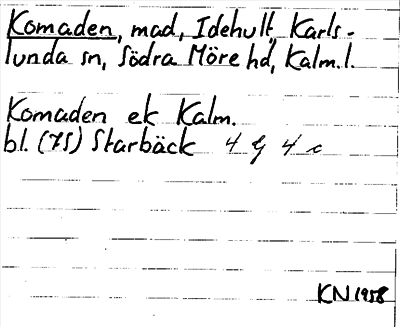 Komaden, mad, Idehult, Karls-
lunda sn, Södra Möre hd, Kalm.l.
Komaden ek Kalm.
bl. (75) Starbäck 4 G 4 c
KN 1958